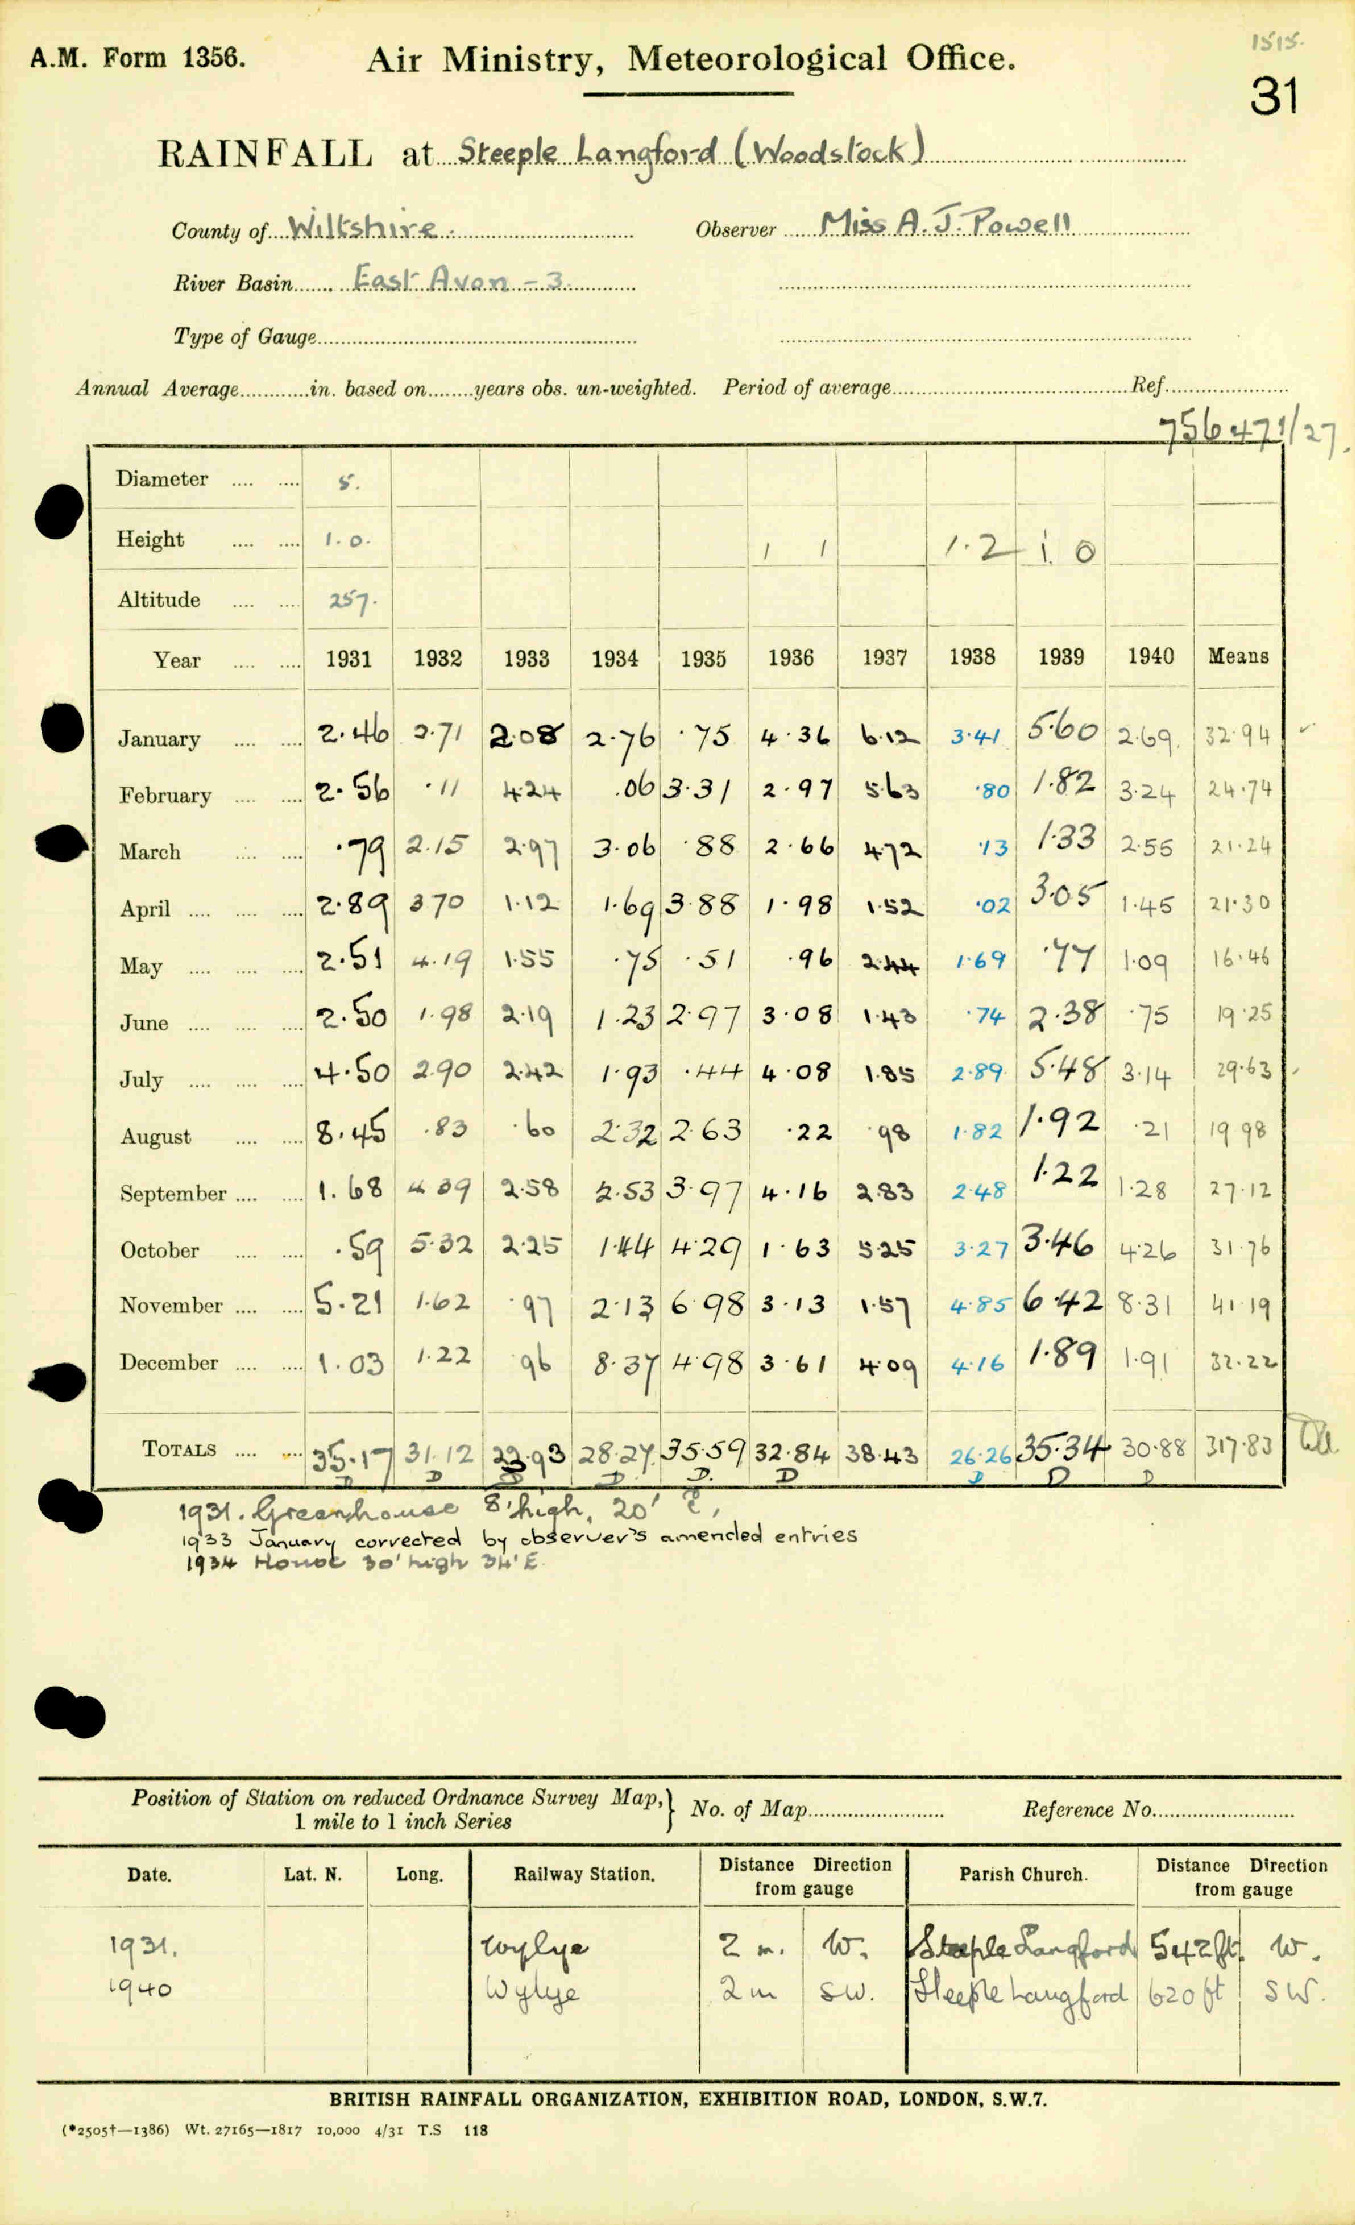 1515.
A.M. Form 1356. Air Ministry, Meteorological Office.
31
RAINFALL at Steeple Langford (Woodstock)
County of Wiltshire. Observer Miss A. J. Powell
River Basin East Avon - 3
Type of Gauge
Annual Average in. based on years obs. un-weighted. Period of average Ref.
756471/27.
Diameter 5.
Height 1.0. 1 1 1.2 1.0
Altitude 257.
Year 1931 1932 1933 1934 1935 1936 1937 1938 1939 1940 Means
January 2.46 2.71 2.08 2.76 .75 4.36 6.12 3.41 5.60 2.69 32.94
February 2.56 .11 4.24 .06 3.31 2.97 5.63 .80 1.82 3.24 24.74
March .79 2.15 2.97 3.06 .88 2.66 4.72 .13 1.33 2.55 21.24
April 2.89 3.70 1.12 1.69 3.88 1.98 1.52 .02 3.05 1.45 21.30
May 2.51 4.19 1.55 .75 .51 .96 2.44 1.69 .77 1.09 16.46
June 2.50 1.98 2.19 1.23 2.97 3.08 1.43 .74 2.38 .75 19.25
July 4.50 2.90 2.42 1.93 .44 4.08 1.85 2.89 5.48 3.14 29.63
August 8.45 .83 .60 2.32 2.63 .22 .98 1.82 1.92 .21 19.98
September 1.68 4.39 2.58 2.53 3.97 4.16 2.83 2.48 1.22 1.28 27.12
October .59 5.32 2.25 1.44 4.29 1.63 5.25 3.27 3.46 4.26 31.76
November 5.21 1.62 .97 2.13 6.98 3.13 1.57 4.85 6.42 8.31 41.19
December 1.03 1.22 .96 8.37 4.98 3.61 4.09 4.16 1.89 1.91 32.22
TOTALS 35.17 31.12 23.93 28.27 35.59 32.84 38.43 26.26 35.34 30.88 317.83
D D D D D. D D D D
1931. Greenhouse 8' high, 20' E,
1933 January corrected by observer's amended entries
1934 House 30' high 34' E
Position of Station on reduced Ordnance Survey Map, } No. of Map Reference No.
1 mile to 1 inch Series
Date. Lat. N. Long. Railway Station. Distance Direction from gauge Parish Church. Distance Direction from gauge
1931. Wylye 2 m. W. Steeple Langford 542 ft. W.
1940 Wylye 2 m SW. Steeple Langford 620 ft SW.
BRITISH RAINFALL ORGANIZATION, EXHIBITION ROAD, LONDON, S.W.7.
(*2505†—1386) Wt. 27165—1817 10,000 4/31 T.S 118